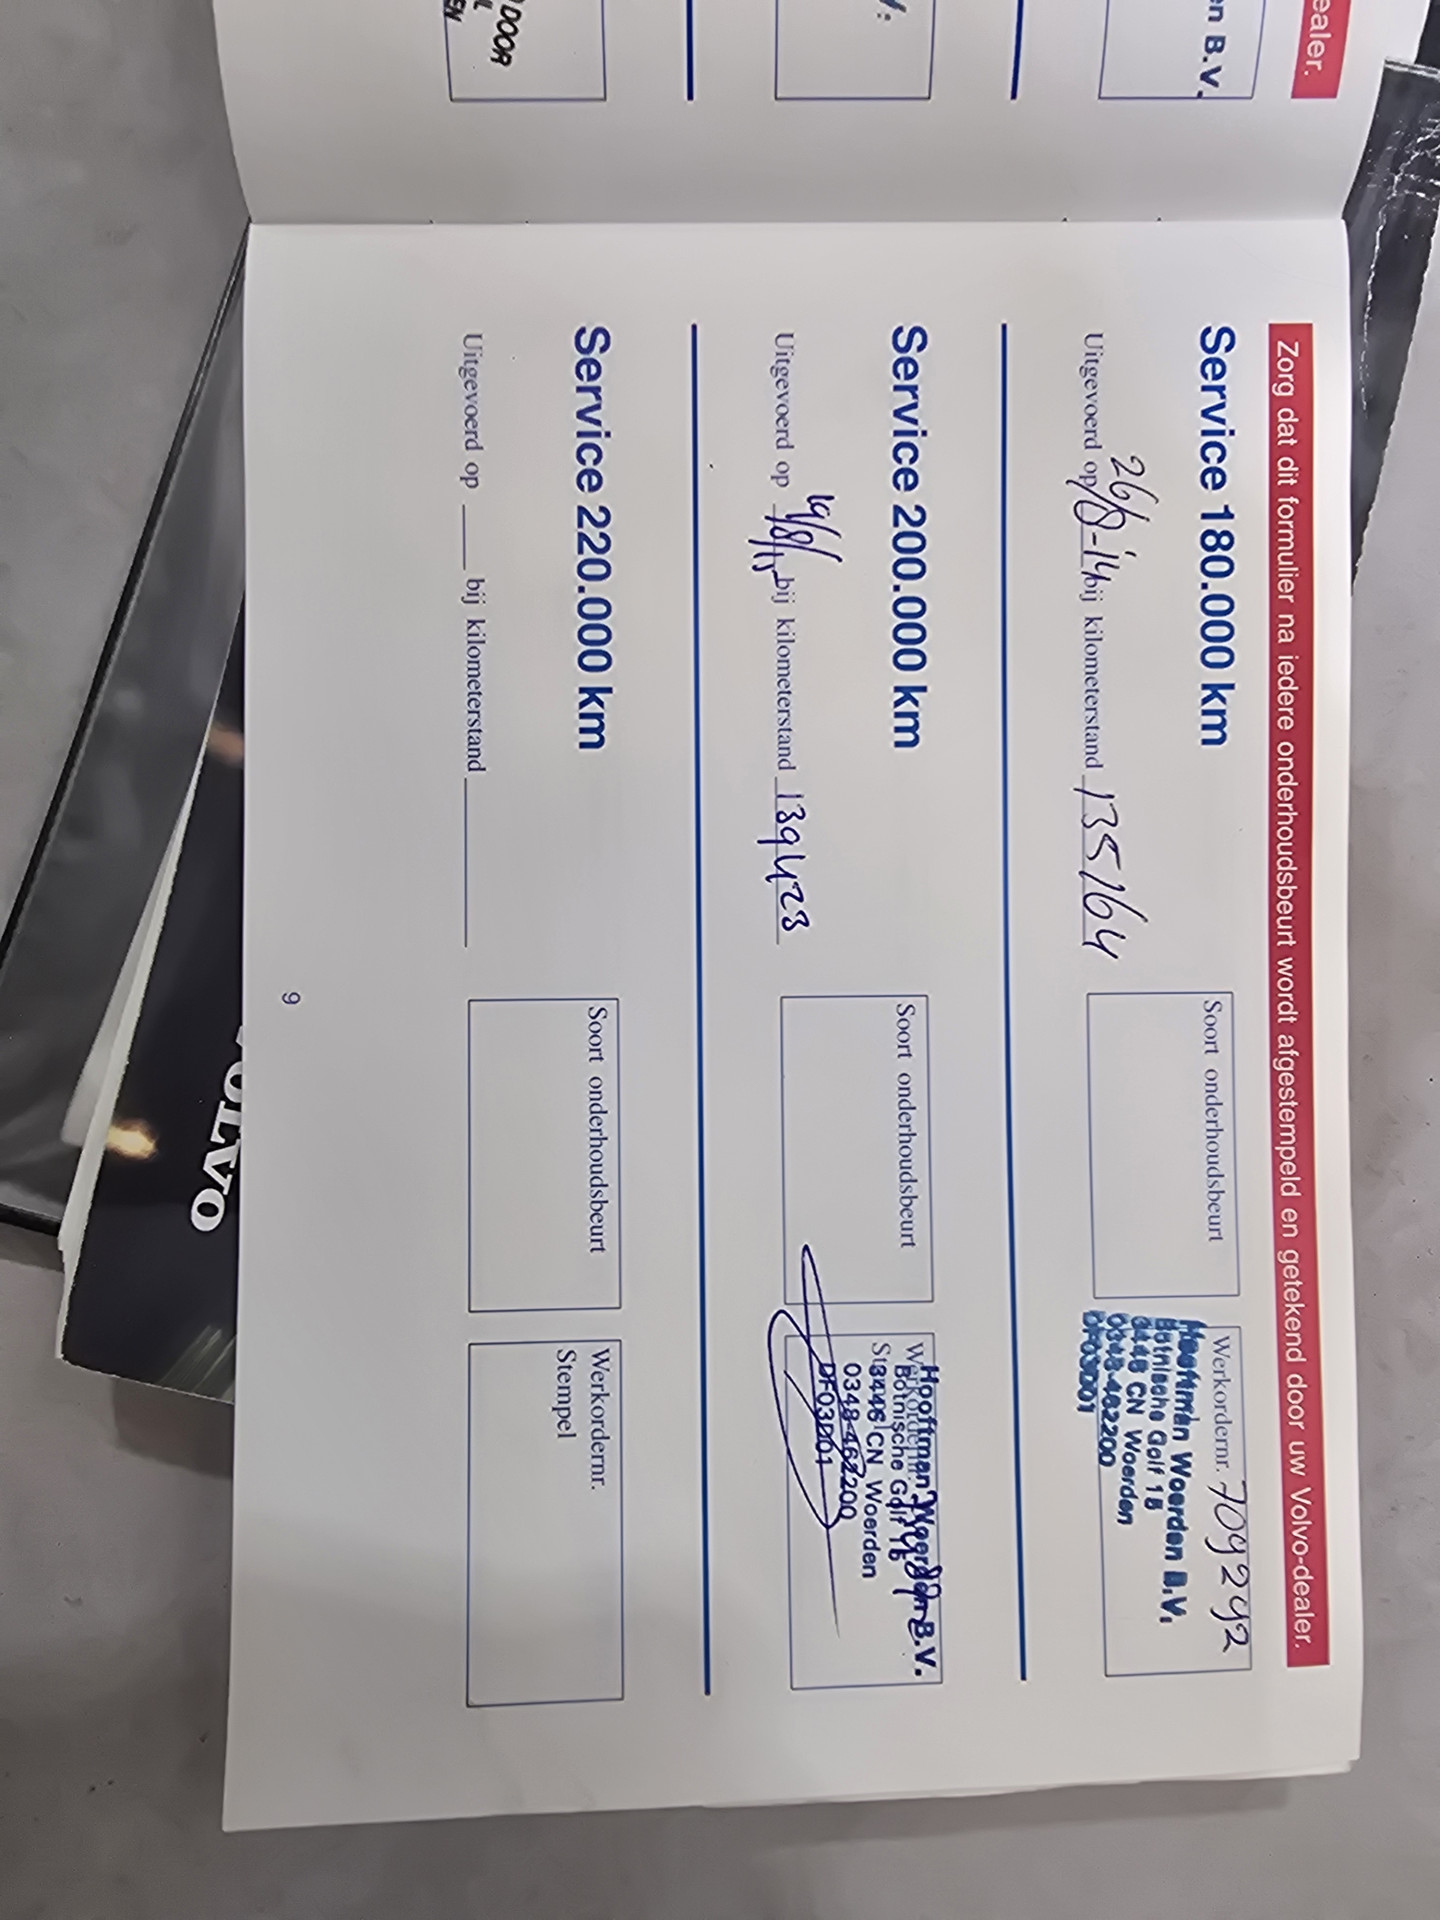 ealer.
en B.V.
DOOR
Zorg dat dit formulier na iedere onderhoudsbeurt wordt afgestempeld en getekend door uw Volvo-dealer.
Service 180.000 km
Uitgevoerd op 26/8-14 bij kilometerstand 135164
Soort onderhoudsbeurt
Werkordernr. 709292
Hooftman Woerden B.V.
Botnische Golf 16
3446 CN Woerden
0348-462200
DF03D01
Service 200.000 km
Uitgevoerd op 19/8/15 bij kilometerstand 139423
Soort onderhoudsbeurt
Hooftman Woerden B.V.
Botnische Golf 16
3446 CN Woerden
0348-462200
DF03D01
Service 220.000 km
Uitgevoerd op ___ bij kilometerstand
Soort onderhoudsbeurt
Werkordernr.
Stempel
9
VOLVO